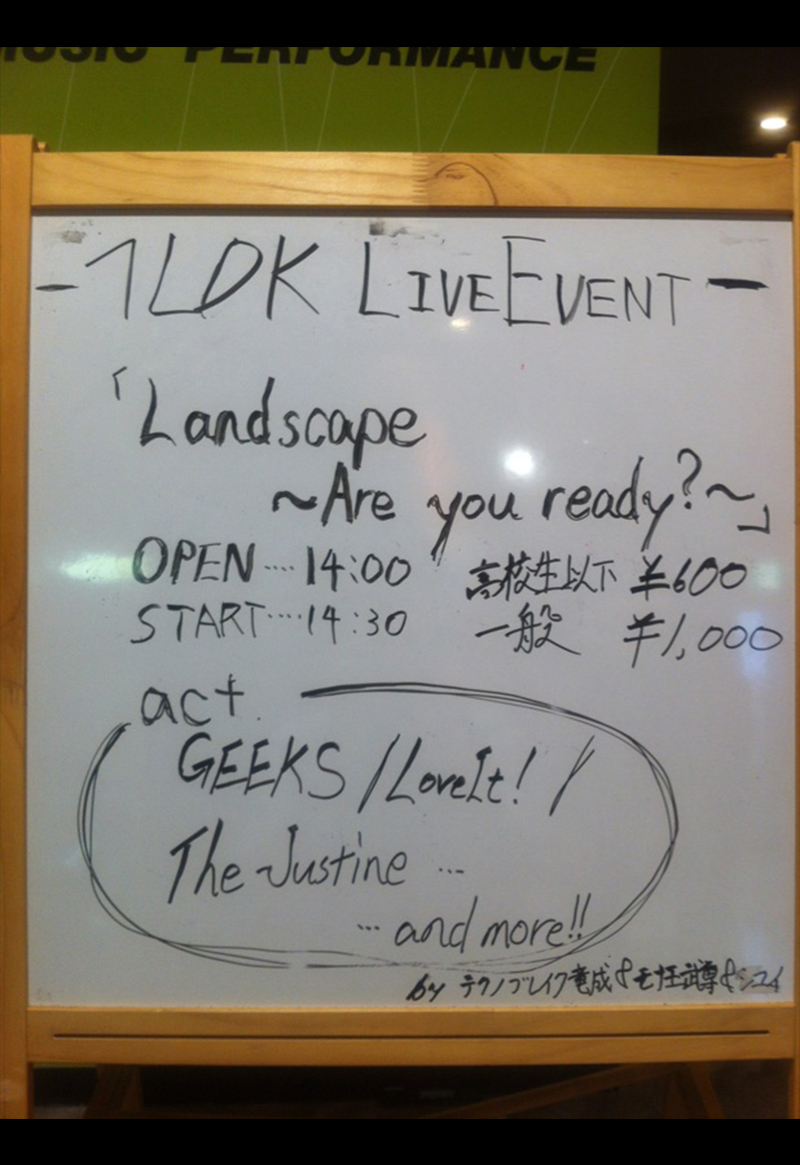 MUSIC PERFORMANCE
-1LDK LIVE EVENT-
「Landscape
~Are you ready?~」
OPEN····14:00 高校生以下 ¥600
START····14:30 一般 ¥1,000
act.
GEEKS / LoveIt! /
The Justine …
… and more!!
by テクノブレイク竜成&モ&シュイ